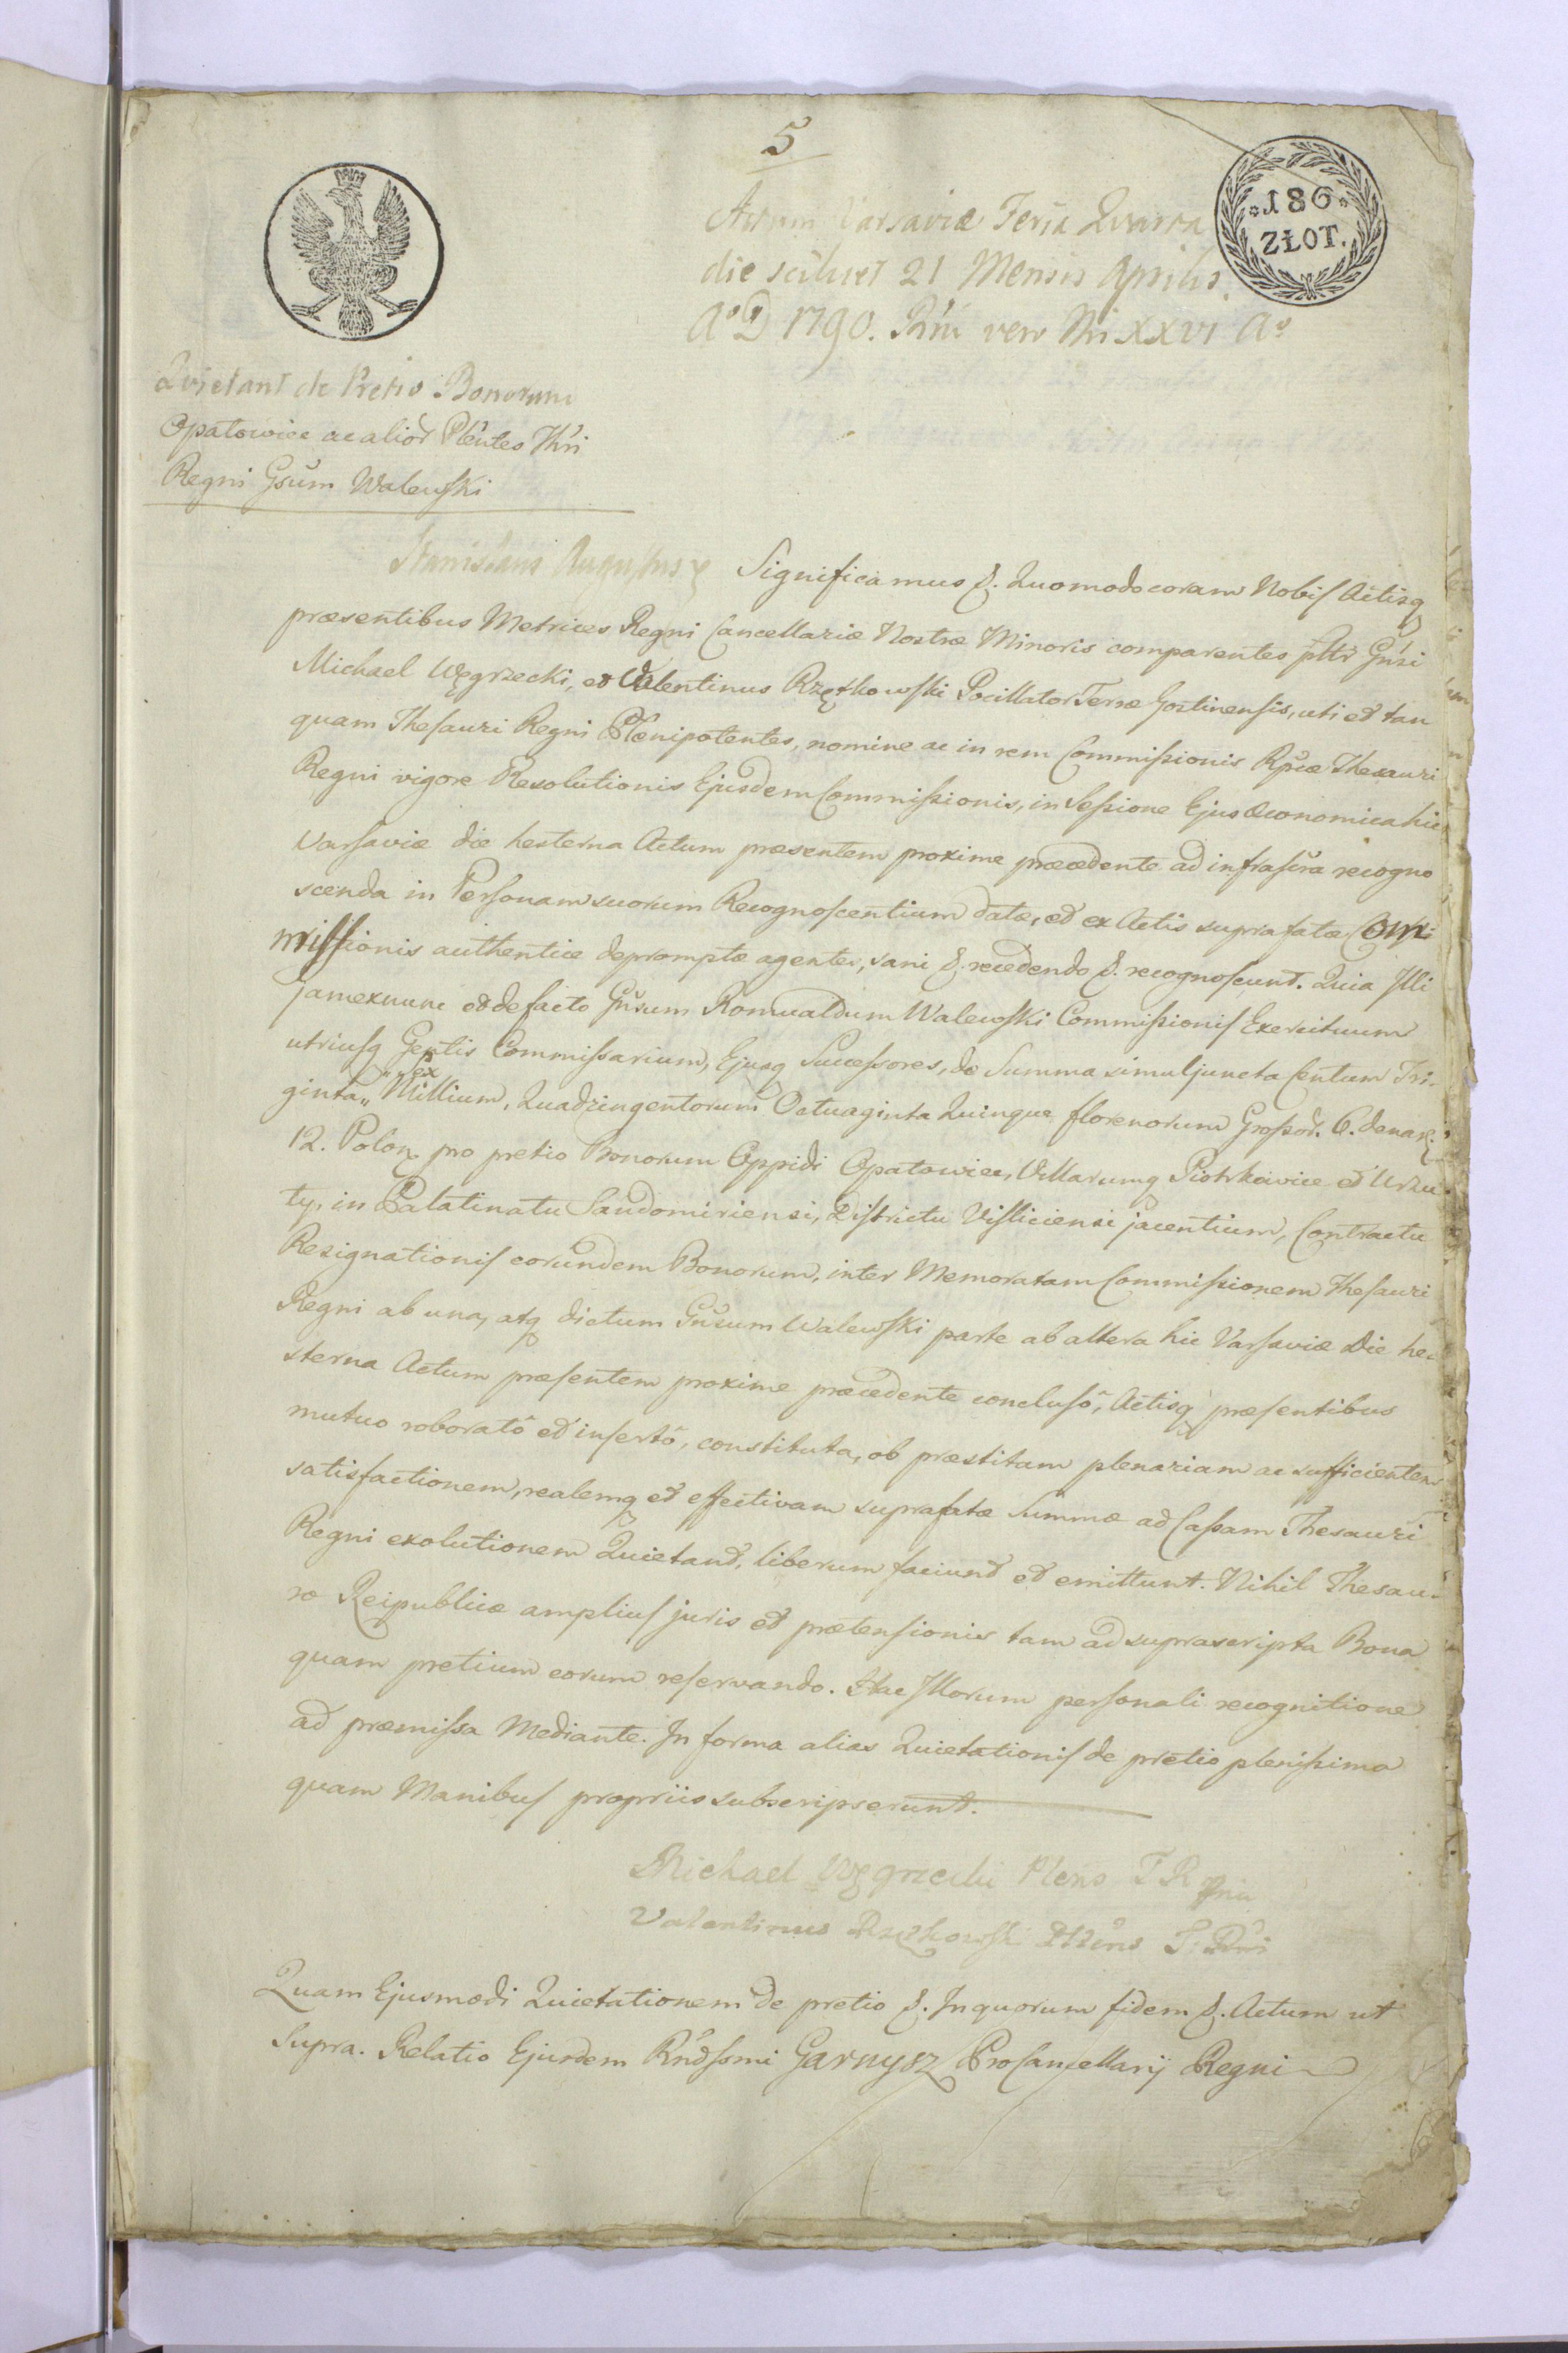 5
180
ZŁOT.
Actum Varsaviæ Feria Quarta
die scilicet 21 Mensis Aprilis
Aº D 1790. Rñi vero Nri XXVI Aº
Quietant de Pretio Bonorum
Opatowice ac alior Plentes Thri
Regni Gsum Walewski
Stanislaus Augustus Significamus &. Quomodo coram Nobis Actisq
præsentibus Metrices Regni Cancellariæ Nostræ Minoris comparentes pltr Gnsi
Michael Węgrzecki, et Valentinus Rzętkowski Pocillator Terræ Gostinensis, uti et tan
quam Thesauri Regni Plenipotentes, nomine ac in rem Commissionis Rpcæ Thesauri
Regni vigore Resolutionis Ejusdem Commissionis, in Sessione Ejus Œconomica hic
Varsaviæ die hesterna Actum præsentem proxime præcedente ad infrascra recogno
scenda in Personam suorum Recognoscentium datæ, et ex Actis suprafatæ Com
missionis authentice depromptæ agentes, sani &. recedendo &. recognoscunt. Quia Illi
jam ex nunc et de facto Gnsum Romualdum Walewski Commissionis Exercituum
utriusq Gentis Commissarium, Ejusq Successores, de Summa simul juncta Centum Tri-
ginta „ sex Millium, Quadringentorum Octuaginta Quinque florenorum Grossor. 6. denar.
12. Polon. pro pretio Bonorum Oppidi Opatowice, Villarumq Piotrkowice et Urzu
ty, in Palatinatu Sandomiriensi, Districtu Visliciensi jacentium, Contractu
Resignationis eorundem Bonorum, inter Memoratam Commissionem Thesauri
Regni ab una, atq dictum Gnsum Walewski parte ab altera hic Varsaviæ Die he-
sterna Actum præsentem proxime præcedente conclusô, Actisq præsentibus
mutuo roboratô et insertô, constituta, ob præstitam plenariam ac sufficientem
satisfactionem, realemq et effectivam suprafatæ Summæ ad Cassam Thesauri
Regni exolutionem Quietant, liberum faciunt et emittunt. Nihil Thesau-
ro Reipublicæ amplius juris et prætensionis tam ad suprascripta Bona
quam pretium eorum reservando. Hac Illorum personali recognitione
ad præmissa Mediante. In forma alias Quietationis de pretio plenissima
quam Manibus propriis subscripserunt.
Michael Węgrzecki Plens T R
Valentinus Rzętkowski T. Rni
Quam Ejusmodi Quietationem de pretio &. In quorum fidem &. Actum ut
Supra. Relatio Ejusdem Rndssmi Garnysz ProCancellarij Regni